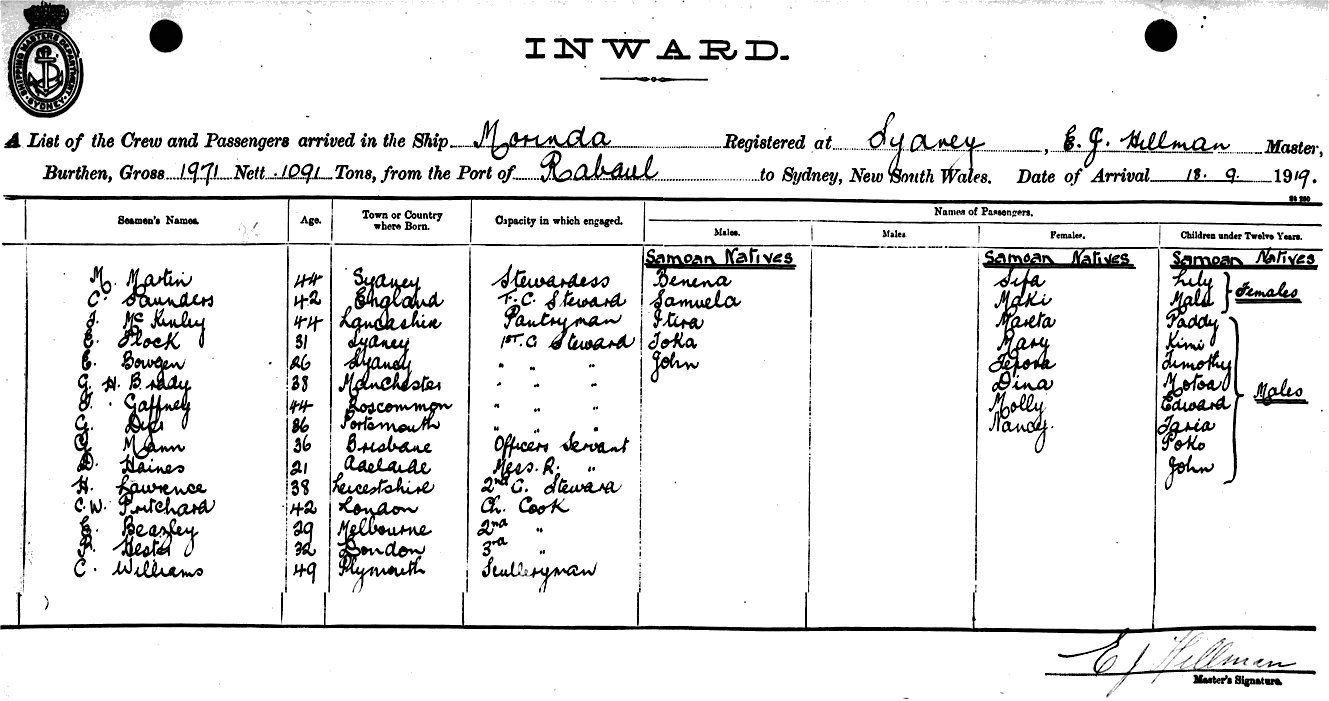 INWARD.
SHIPPING MASTERS DEPARTMENT SYDNEY
A List of the Crew and Passengers arrived in the Ship Morinda Registered at Sydney, E. J. Hillman Master,
Burthen, Gross 1971 Nett 1091 Tons, from the Port of Rabaul to Sydney, New South Wales. Date of Arrival 18. 9. 1919.
Seamen's Names. Age. Town or Country where Born. Capacity in which engaged. Names of Passengers.
Males. Males. Females. Children under Twelve Years.
Samoan Natives Samoan Natives Samoan Natives
M. Martin 44 Sydney Stewardess Benena Sifa Lily
C. Saunders 42 England F. C. Steward Samuela Maki Mala Females
J. McKinley 44 Lancashire Pantryman Itira Mareta Paddy
E. Plock 31 Sydney 1st. C Steward Toka Mary Kimi
E. Bowden 26 Sydney " " " John Tepora Timothy
G. H. Brady 38 Manchester " " " Dina Motoa Males
Gaffney 44 Roscommon " " " Molly Edward
G. 36 Portsmouth " " " Nancy. Taria
Mann 36 Brisbane Officers Servant Poko
D. Haines 21 Adelaide Mess. R. " John
H. Lawrence 38 Leicestshire 2nd C. Steward
C. W. Pritchard 42 London Ch. Cook
E. Beazley 29 Melbourne 2nd "
Hester 32 London 3rd "
C. Williams 49 Plymouth Sculleryman
E J Hillman
Master's Signature.